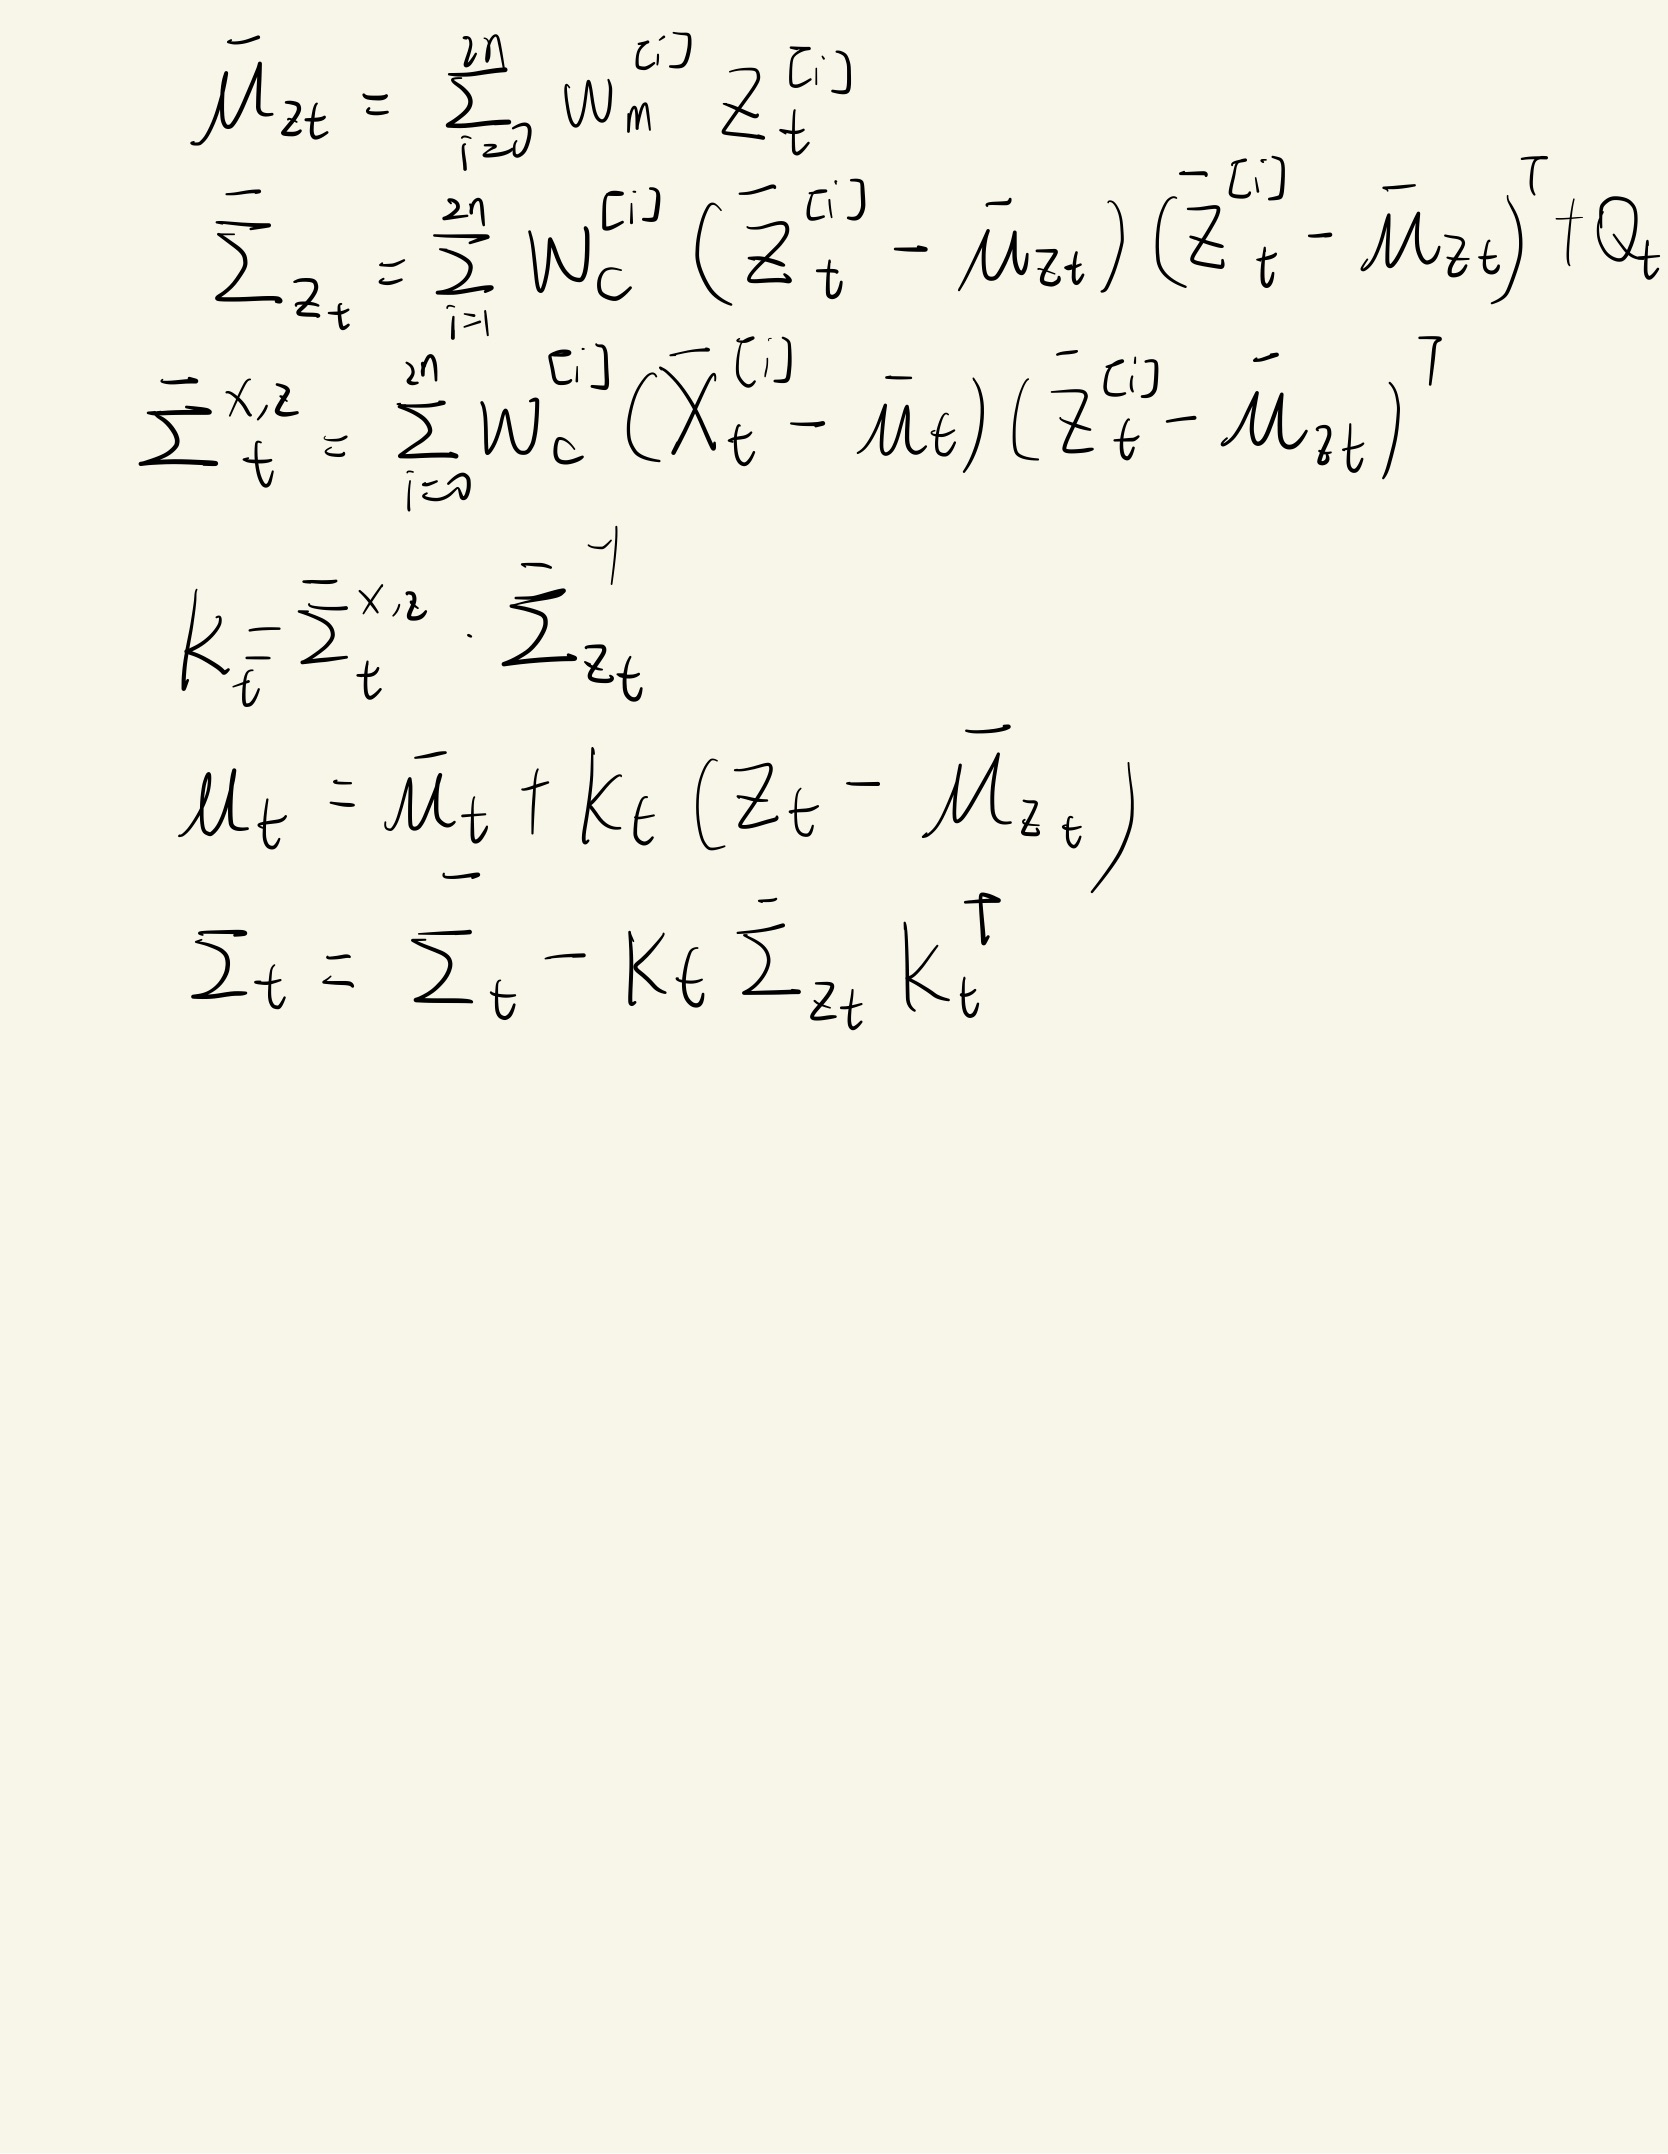 $\bar{\mu}_{zt} = \sum_{i=0}^{2n} w_m^{[i]} z_t^{[i]}$
$\bar{\Sigma}_{z_t} = \sum_{i=1}^{2n} w_c^{[i]} (\bar{z}_t^{[i]} - \bar{\mu}_{zt}) (\bar{z}_t^{[i]} - \bar{\mu}_{zt})^T + Q_t$
$\bar{\Sigma}_t^{x,z} = \sum_{i=0}^{2n} w_c^{[i]} (\bar{X}_t^{[i]} - \bar{\mu}_t) (\bar{z}_t^{[i]} - \bar{\mu}_{zt})^T$
$k_t = \bar{\Sigma}_t^{x,z} \cdot \bar{\Sigma}_{z_t}^{-1}$
$\mu_t = \bar{\mu}_t + k_t (z_t - \bar{\mu}_{z_t})$
$\Sigma_t = \bar{\Sigma}_t - k_t \bar{\Sigma}_{zt} k_t^T$